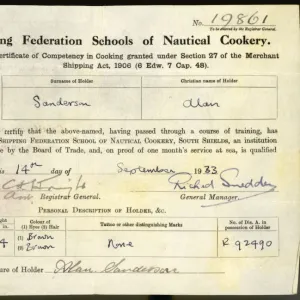 No. 19861
ng Federation Schools of Nautical Cookery.
ertificate of Competency in Cooking granted under Section 27 of the Merchant
Shipping Act, 1906 (6 Edw. 7 Cap. 48).
Surname of Holder
Christian name of Holder
Sanderson
Alan
certify that the above-named, having passed through a course of training, has
SHIPPING FEDERATION SCHOOL OF NAUTICAL COOKERY, SOUTH SHIELDS, an institution
e by the Board of Trade, and, on proof of one month's service at sea, is qualified
14th day of September 1933
Registrar General.
General Manager.
PERSONAL DESCRIPTION OF HOLDER, &c.
Colour of
(1) Eyes (2) Hair
Tattoo or other distinguishing Marks
No. of Dis. A in
possession of Holder
4
(1) Brown
(2) Brown
None
R 92490
ure of Holder
Alan Sanderson